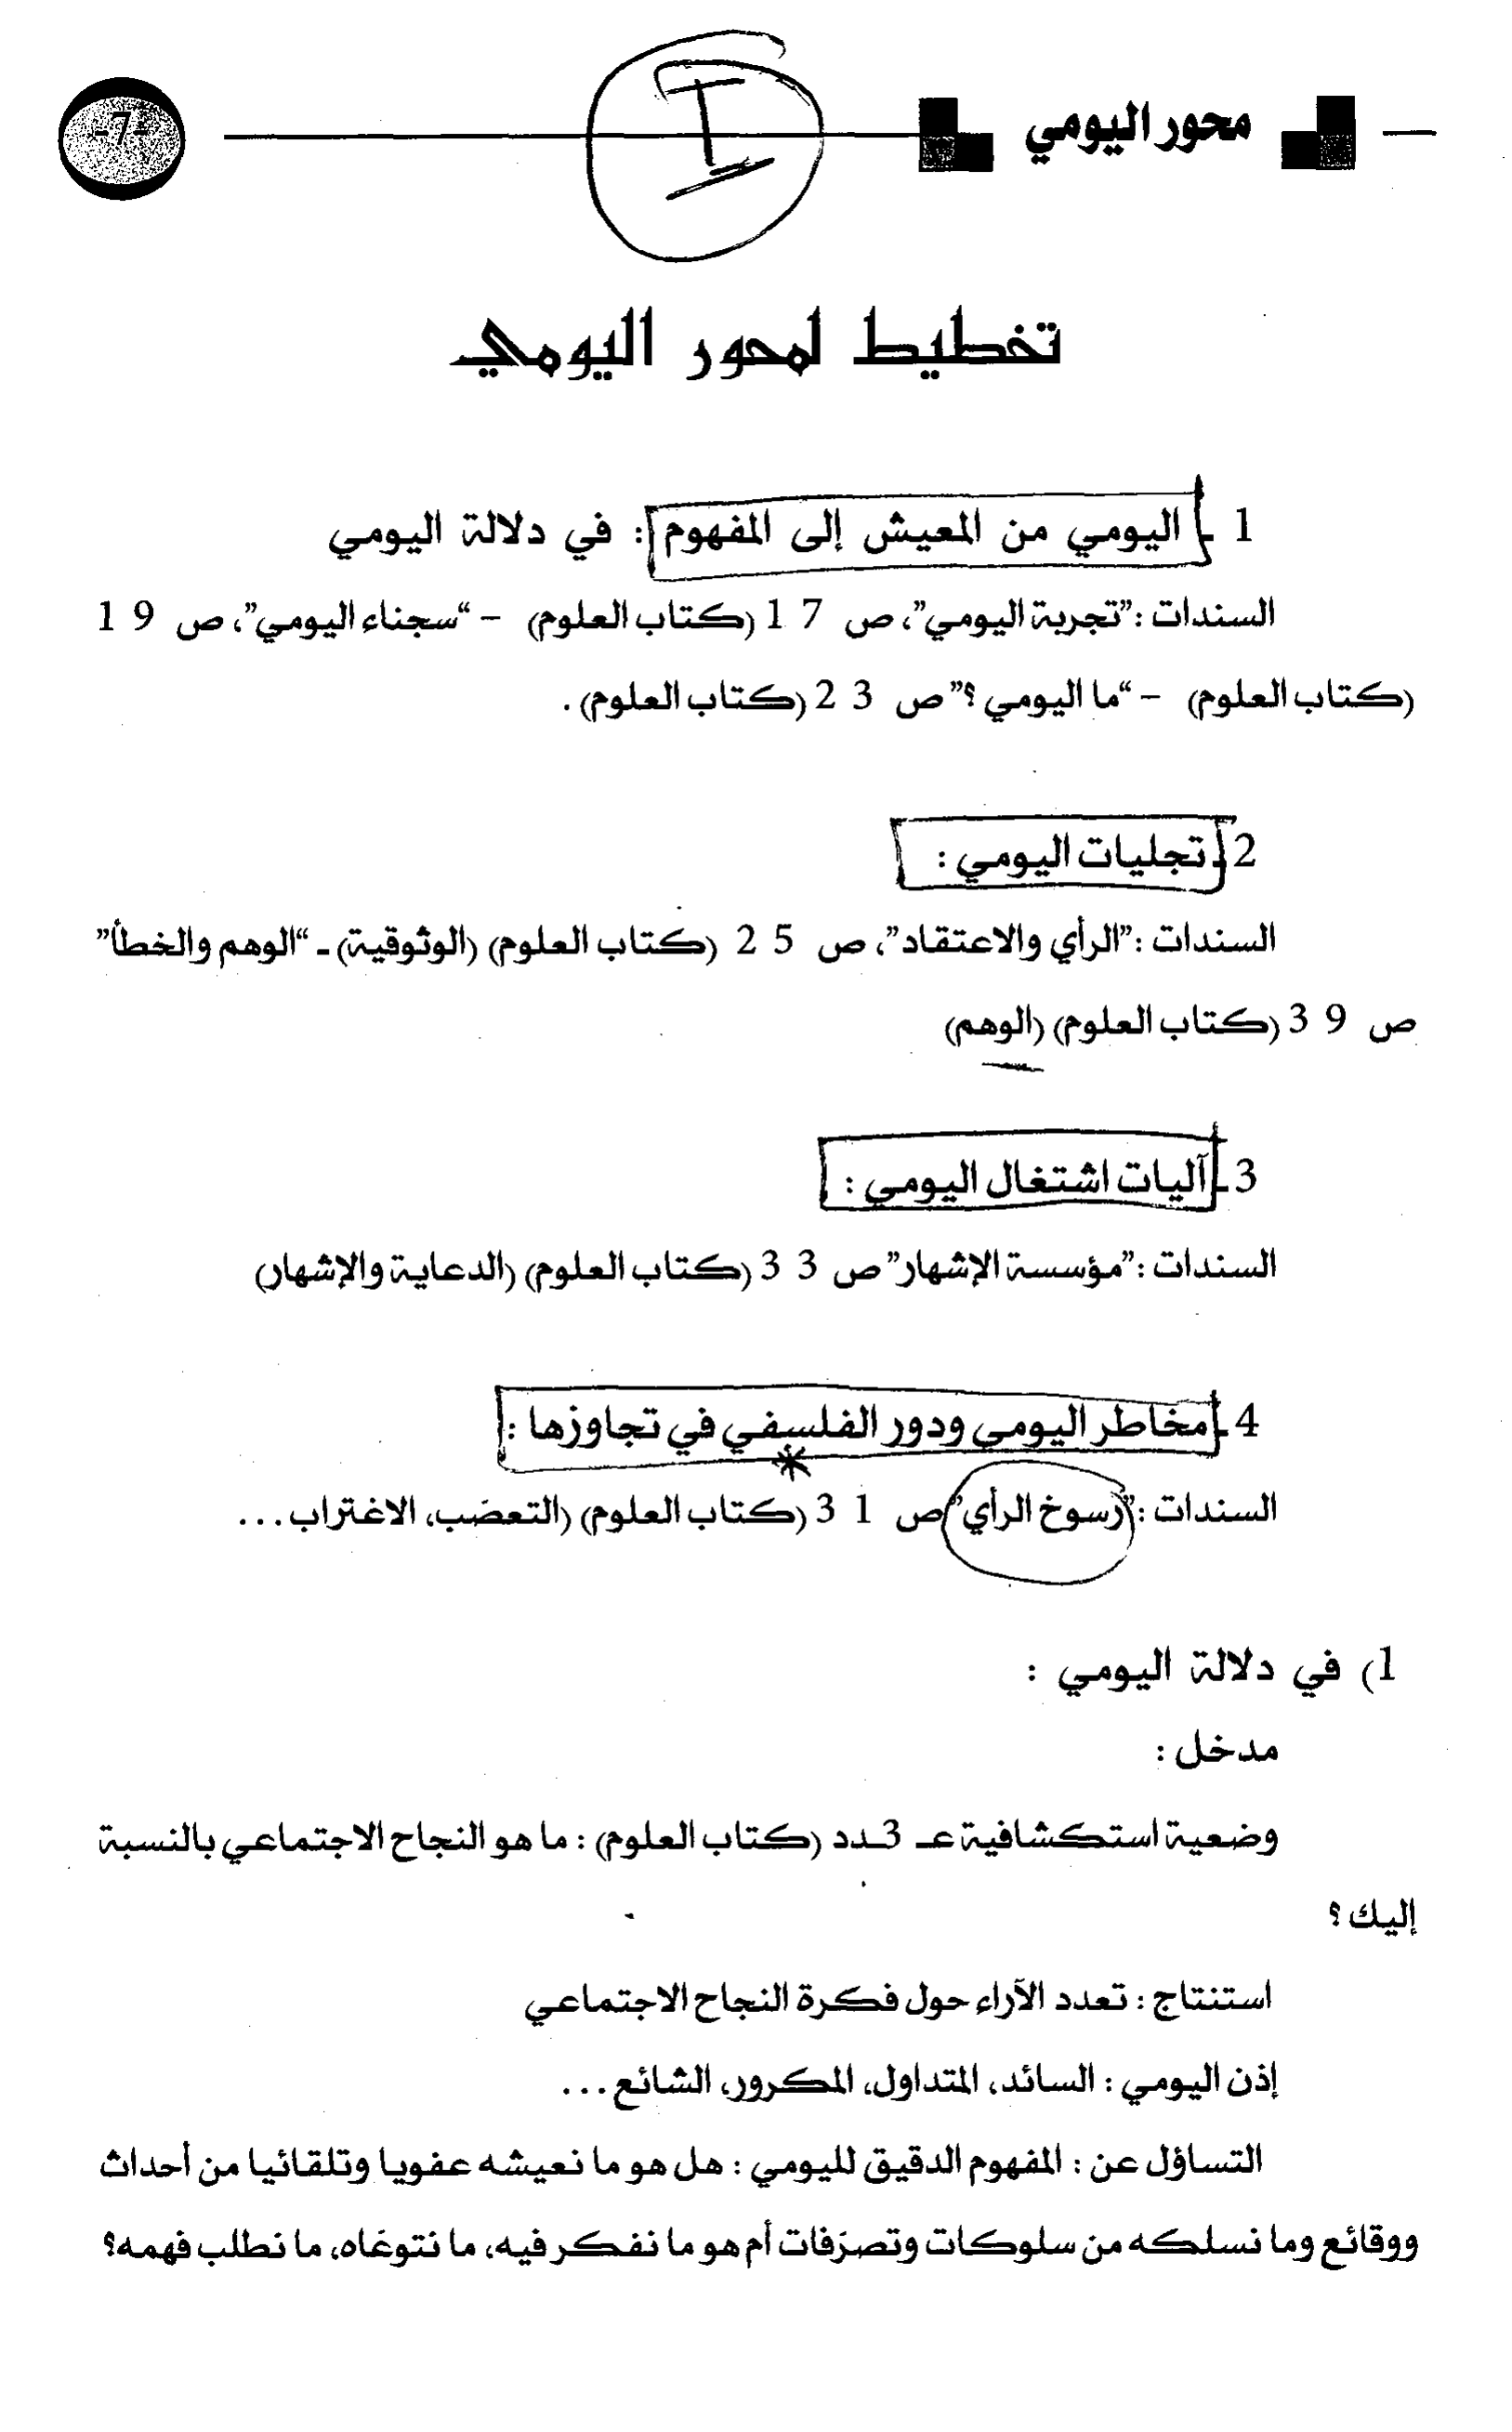 محور اليومي
-7-
I
تخطيط لمحور اليومي
1 - اليومي من المعيش إلى المفهوم : في دلالة اليومي
السندات :"تجربة اليومي"، ص 17 (كتاب العلوم) - "سجناء اليومي"، ص 19
(كتاب العلوم) - "ما اليومي ؟" ص 23 (كتاب العلوم) .
2 - تجليات اليومي :
السندات :"الرأي والاعتقاد"، ص 25 (كتاب العلوم) (الوثوقية) - "الوهم والخطأ"
ص 39 (كتاب العلوم) (الوهم)
3 - آليات اشتغال اليومي :
السندات :"مؤسسة الإشهار" ص 33 (كتاب العلوم) (الدعاية والإشهار)
4 - مخاطر اليومي ودور الفلسفي في تجاوزها :
السندات :"رسوخ الرأي" ص 31 (كتاب العلوم) (التعصّب، الاغتراب...
1) في دلالة اليومي :
مدخل :
وضعية استكشافية عـ 3ـدد (كتاب العلوم) : ما هو النجاح الاجتماعي بالنسبة
إليك ؟
استنتاج : تعدد الآراء حول فكرة النجاح الاجتماعي
إذن اليومي : السائد، المتداول، المكرور، الشائع...
التساؤل عن : المفهوم الدقيق لليومي : هل هو ما نعيشه عفويا وتلقائيا من أحداث
ووقائع وما نسلكه من سلوكات وتصرّفات أم هو ما نفكر فيه، ما نتوغّاه، ما نطلب فهمه؟